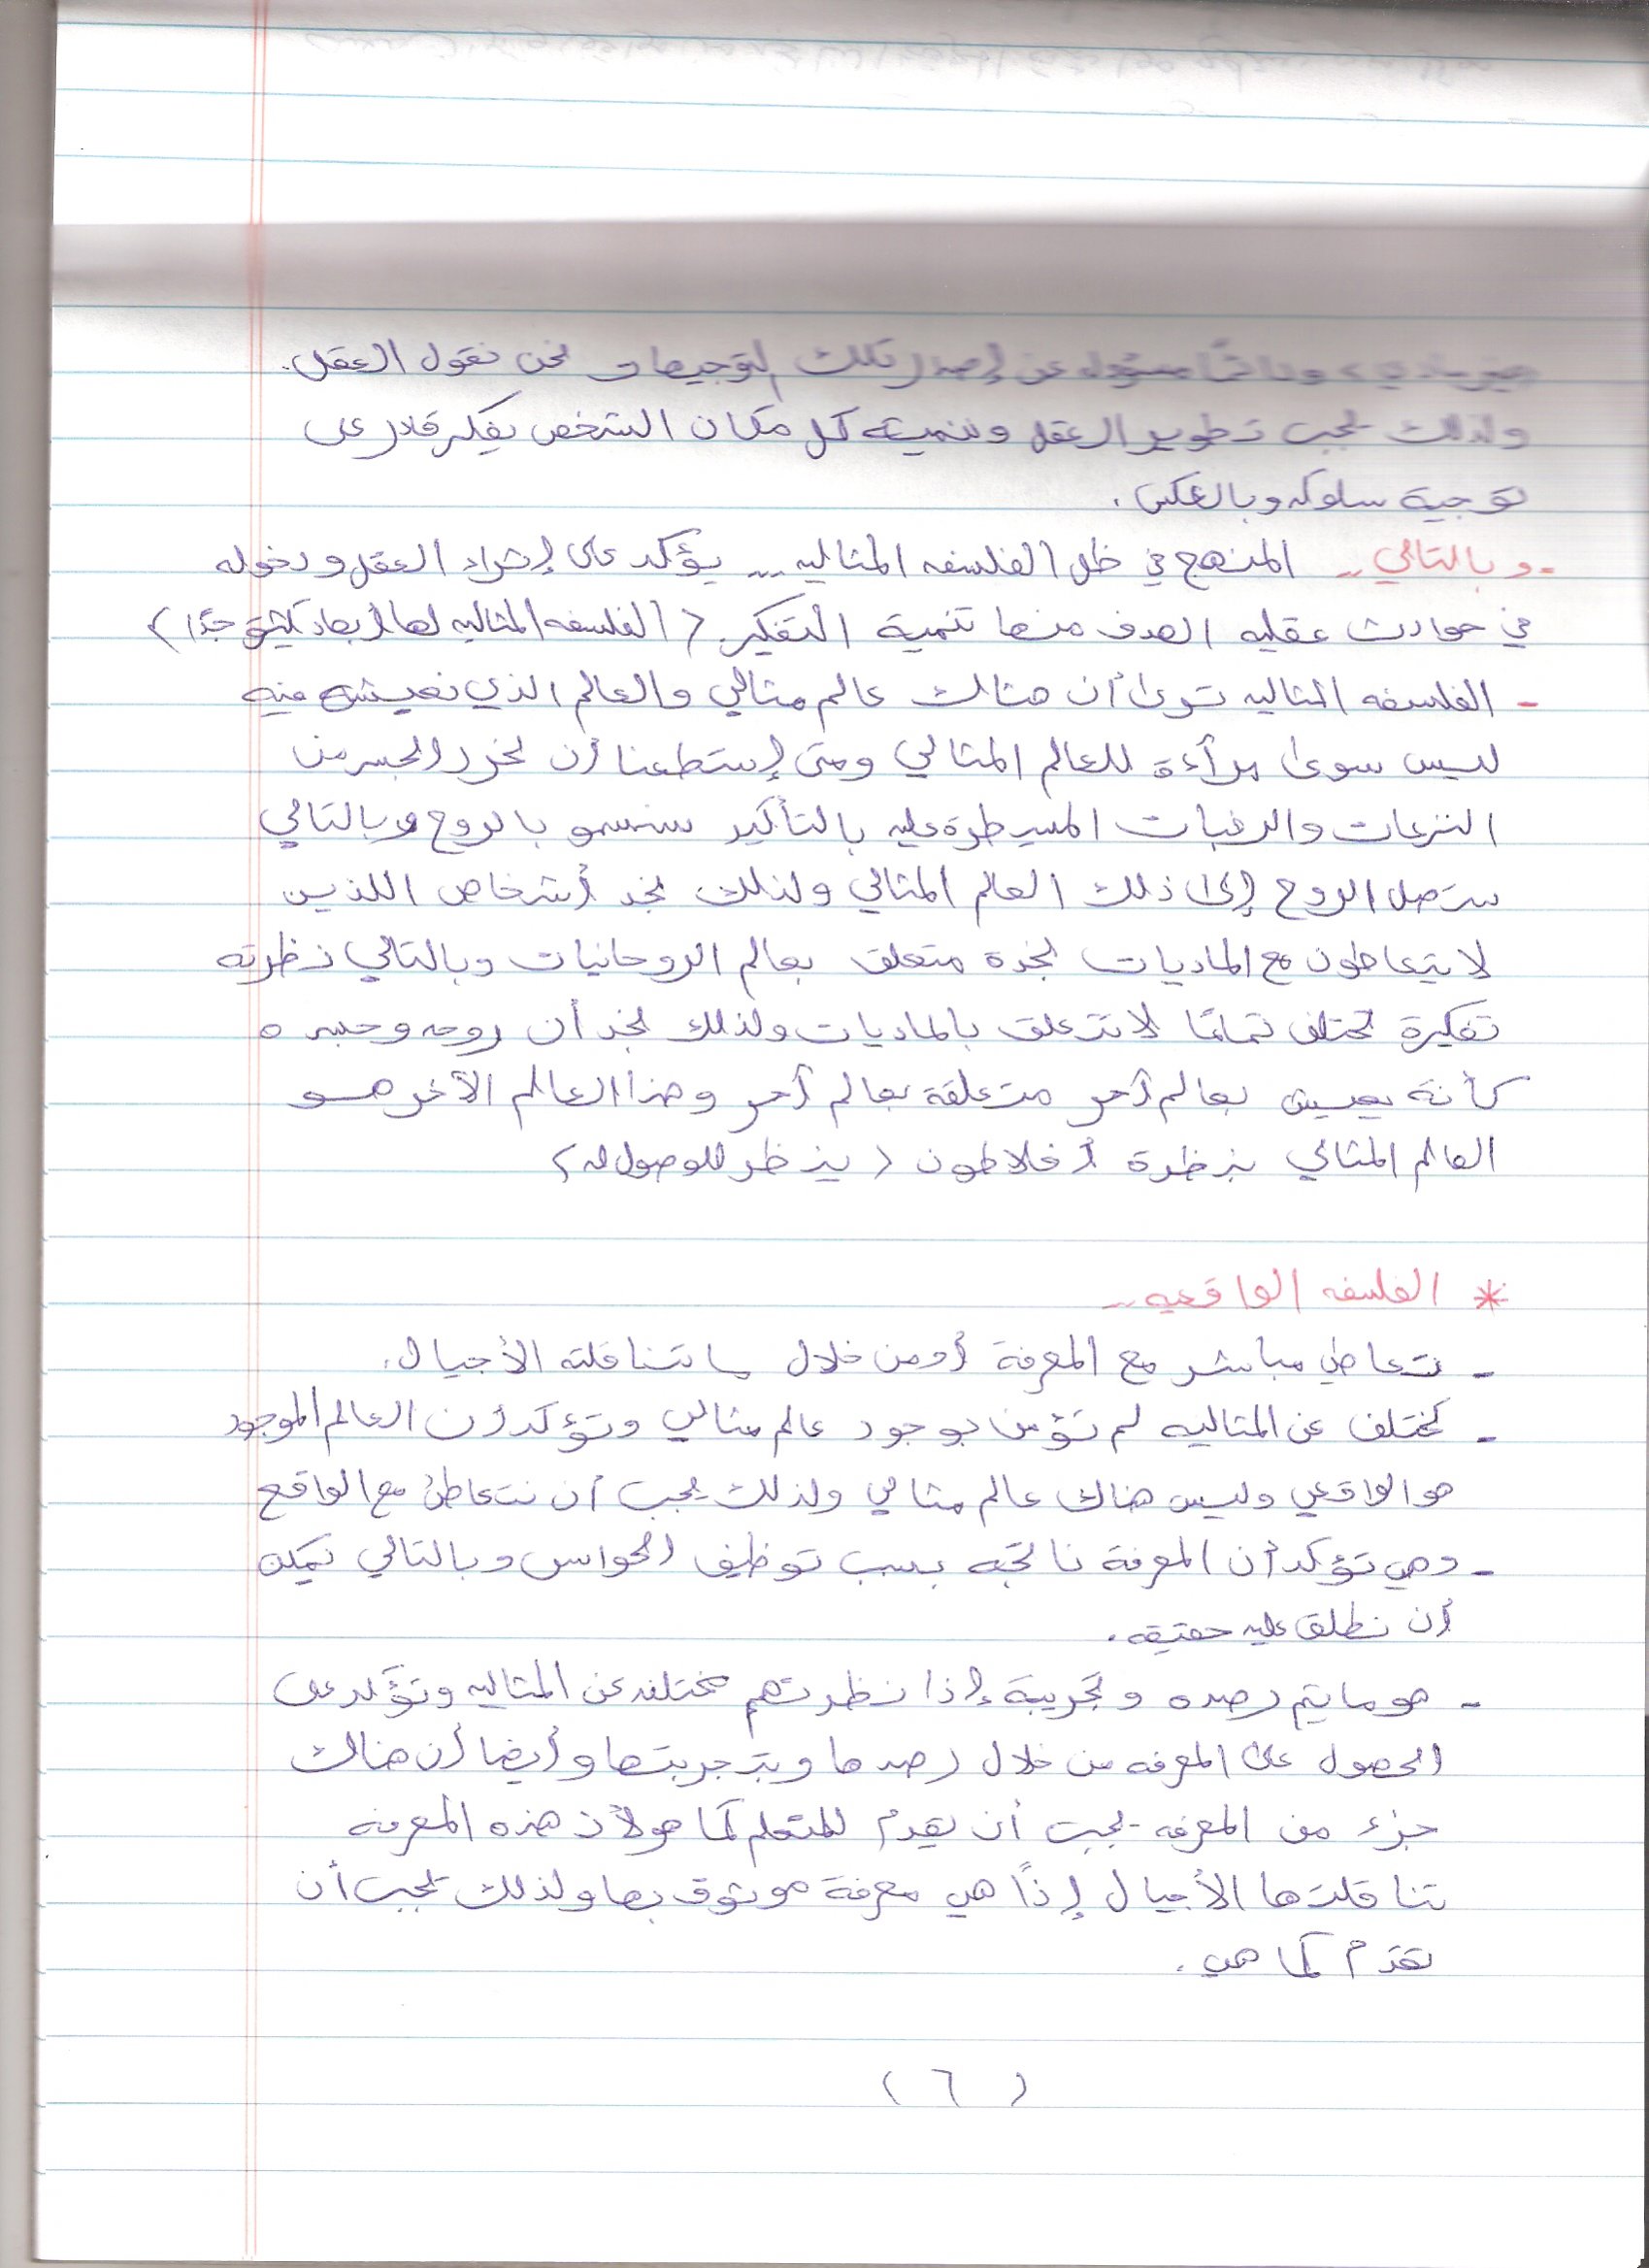 غير مادي، ودائمًا مسؤوله عن إصدار تلك التوجيهات نحن نقول العقل.
ولذلك يجب تطوير العقل وتنميته كل مكان الشخص يفكر قادر على
توجية سلوكه وبالعكس.
- وبالتالي .. المنهج في ظل الفلسفه المثاليه ... يؤكد على إثراء العقل ودخوله
في حوادث عقليه الهدف منها تنمية التفكير. (الفلسفه المثاليه لها أبعاد كثيرة جدًا)
- الفلسفه المثاليه ترى أن هناك عالم مثالي والعالم الذي نعيش فيه
ليس سوى مرآءة للعالم المثالي ومتى إستطعنا أن نحرر الجسد من
النزعات والرغبات المسيطرة عليه بالتأكيد ستسمو بالروح وبالتالي
ستصل الروح إلى ذلك العالم المثالي ولذلك نجد أشخاص اللذين
لا يتعاطون مع الماديات نجدة متعلق بعالم الروحانيات وبالتالي نظرته
تفكيرة تختلف تمامًا لا تتعلق بالماديات ولذلك نجد أن روحه وجسده
كأنة يعيش بعالم آخر متعلقة بعالم آخر وهذا العالم الآخر هو
العالم المثالي بنظرة أفلاطون (ينظر للوصول له)
* الفلسفه الواقعيه ..
- تتعاطى مباشر مع المعرفة أو من خلال ما تتناقلته الأجيال.
- تختلف عن المثاليه لم تؤمن بوجود عالم مثالي وتؤكد أن العالم الموجود
هو الواقعي وليس هناك عالم مثالي ولذلك يجب أن نتعاطى مع الواقع
- وهي تؤكد أن المعرفة ناتجه بسبب توظيف الحواس وبالتالي يمكن
أن نطلق عليه حقيقه.
- هو ما يتم رصده وتجريبة إذا نظرتهم مختلفه عن المثاليه وتؤكد على
الحصول على المعرفه من خلال رصدها وبتجربتها وأيضا أن هناك
جزء من المعرفه يجب أن يقدم للمتعلم كما هو لأن هذه المعرفه
تناقلتها الأجيال إذًا هي معرفة موثوق بها ولذلك يجب أن
تقدم كما هي.
(٦)